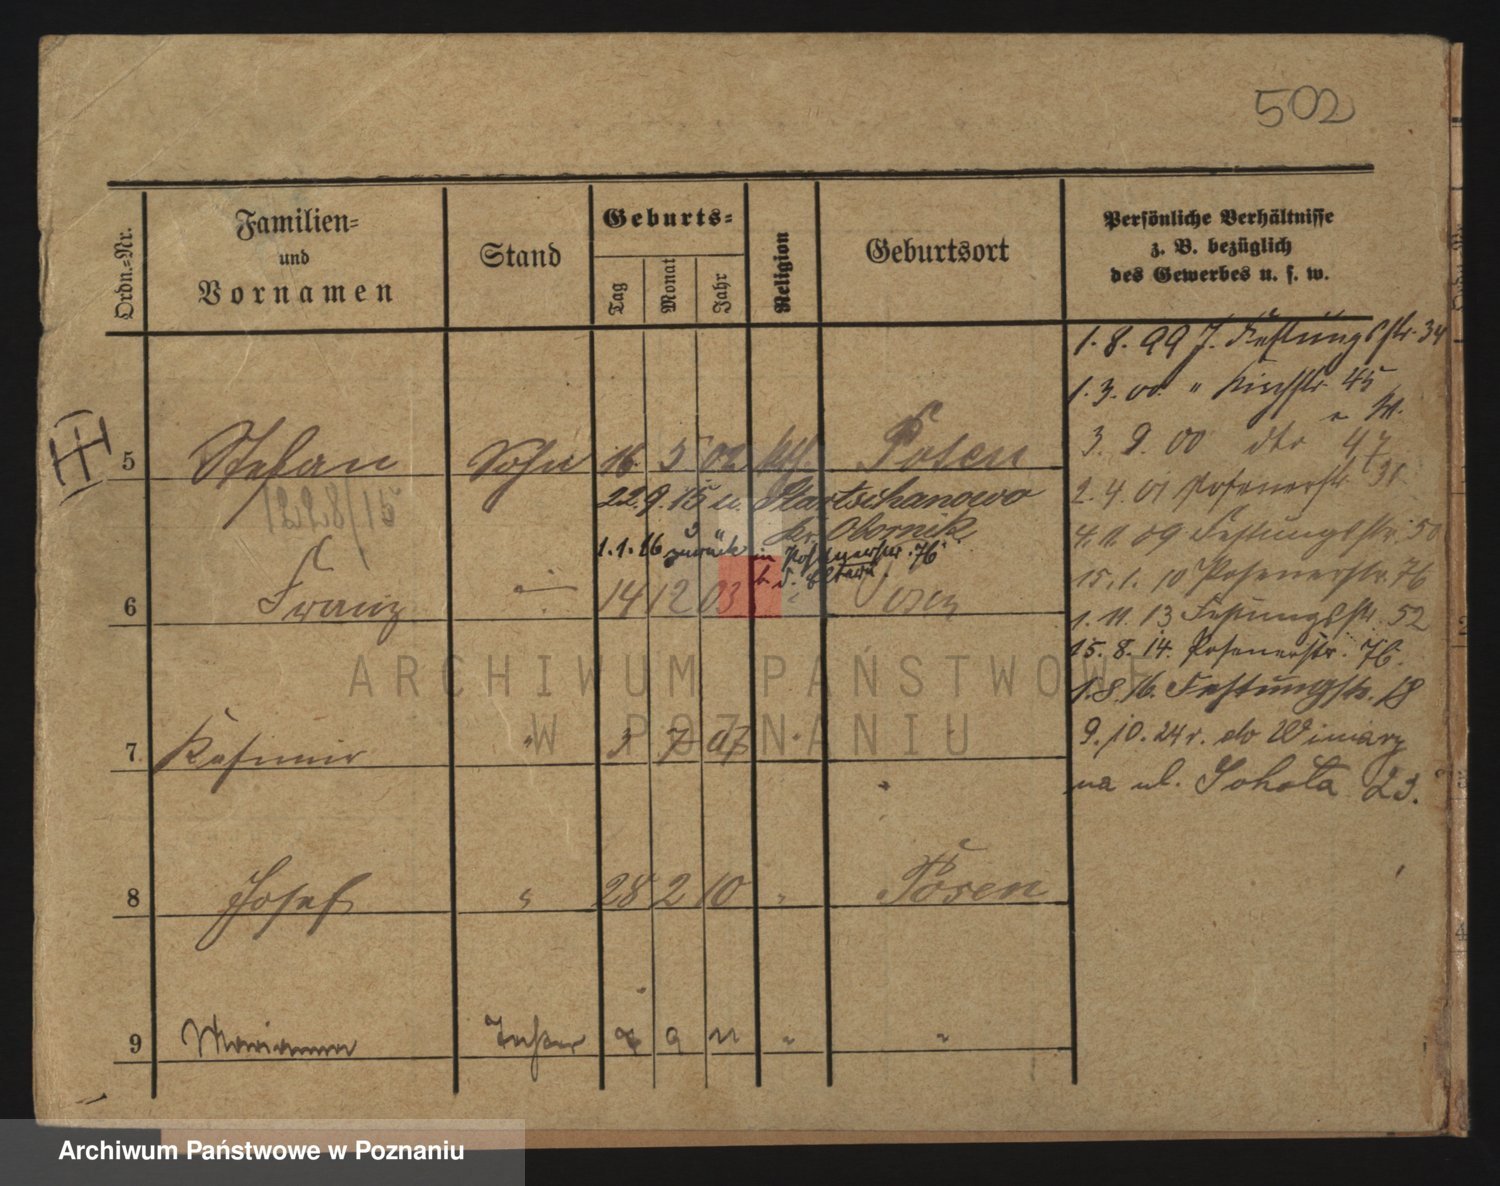 502
Ordn.=Nr.
Familien=
und
Vornamen
Stand
Geburts=
Tag
Monat
Jahr
Religion
Geburtsort
Persönliche Verhältnisse
z. B. bezüglich
des Gewerbes u. s. w.
1. 8. 99 J. Festungsstr. 34
1. 3. 00 " Kirchstr. 45
3. 9. 00 dto 47
2. 4. 01 Posenerstr. 31
4. 11. 09 Festungsstr. 50
15. 1. 10 Posenerstr. 76
1. 11. 13 Festungsstr. 52
15. 8. 14. Posenerstr. 76.
1. 8. 16. Festungstr. 18
9. 10. 24 r. do Winiary
na ul. Sokoła 23.
5 Stefan Sohn 16. 5 02 kth. Posen
22. 9. 15 u. Startschanowo
Kr. Obornik
1. 1. 16 zurück in Posenerstr. 76
6 Franz 14 12 03 Posen
7. Kasimir " 3 7 07 "
8 Josef " 28 2 10 " Posen
9 Marianna Tochter 9 11 " "
ARCHIWUM PAŃSTWOWE
W POZNANIU
Archiwum Państwowe w Poznaniu